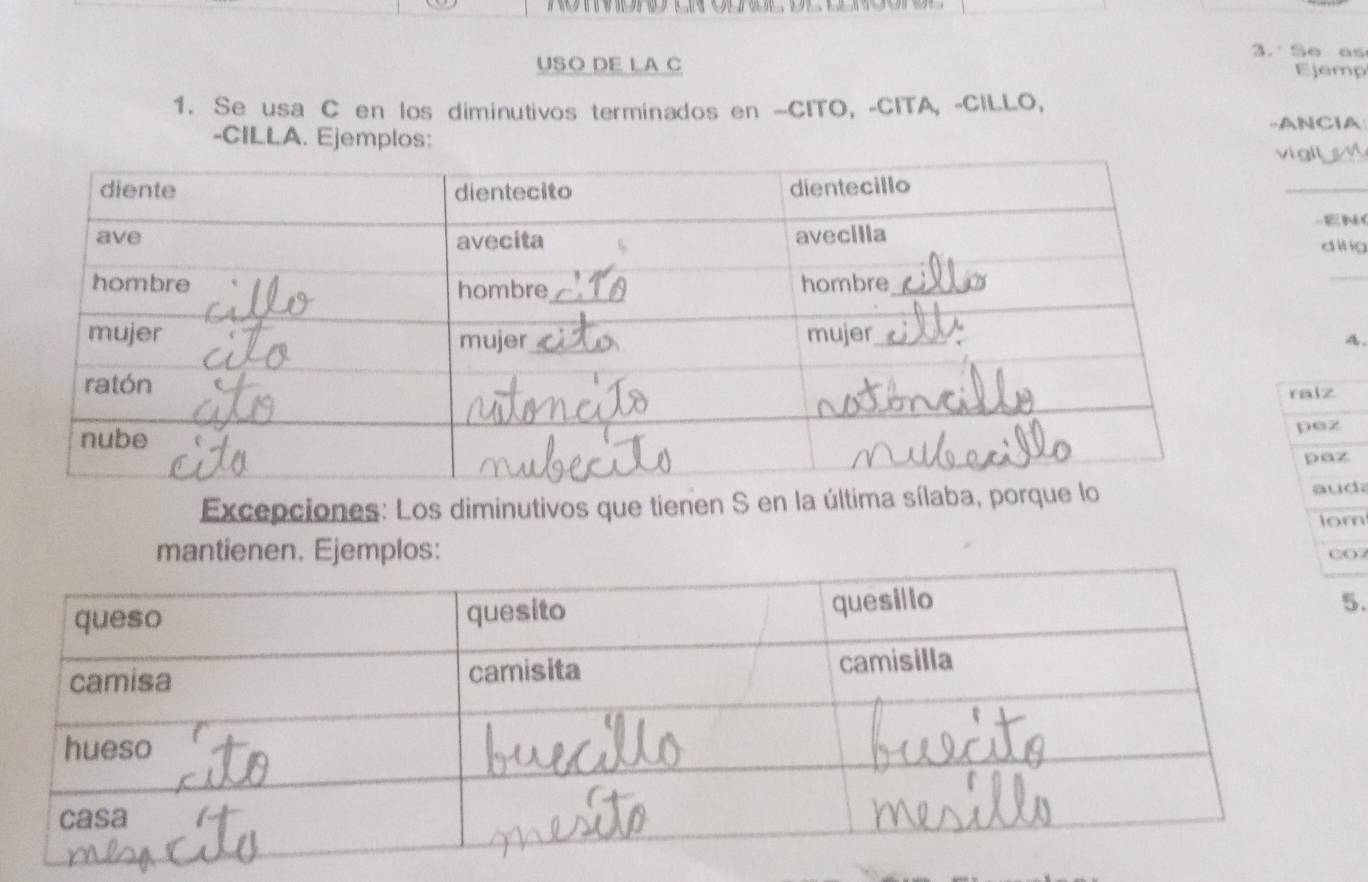 USO DE LA C
1. Se usa C en los diminutivos terminados en -CITO, -CITA, -CILLO,
-CILLA. Ejemplos:
diente dientecito dientecillo
ave avecita avecilla
hombre cillo hombre cito hombre cillo
mujer cito mujer cito mujer
ratón cito ratoncito ratoncillo
nube cita nubecito nubecillo
Excepciones: Los diminutivos que tienen S en la última sílaba, porque lo
mantienen. Ejemplos:
queso quesito quesillo
camisa camisita camisilla
hueso cito buecillo buecito
casa
mesa cito mesito mesillo
3. Se es
Ejemp
-ANCIA:
vigil
-ENC
dilig
4.
raíz
pez
paz
auda
lom
coz
5.